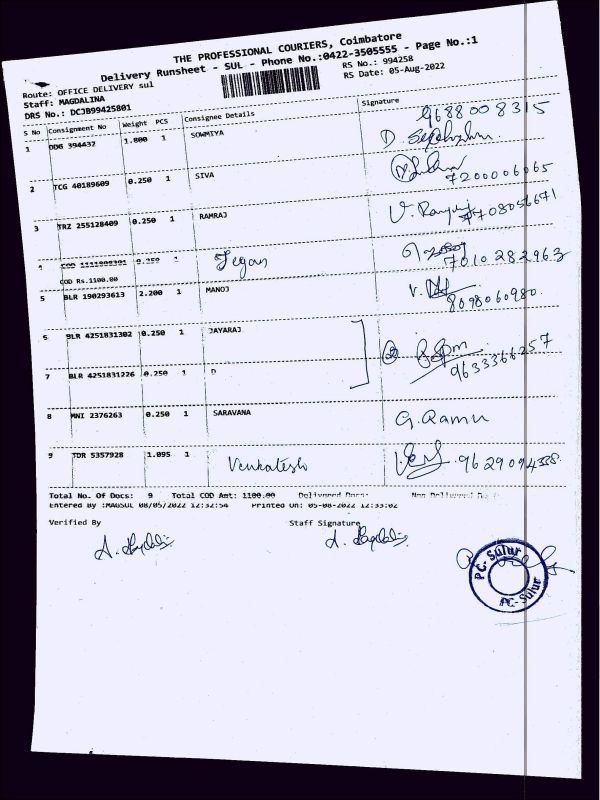 THE PROFESSIONAL COURIERS, Coimbatore
Delivery Runsheet - SUL - Phone No.:0422-3505555 - Page No.:1
Route: OFFICE DELIVERY sul
RS No.: 994258
Staff: MAGDALINA
RS Date: 05-Aug-2022
DRS No.: DCJB99425801
S No Consignment No Weight PCS Consignee Details Signature
9688008315
1 DDG 394432 1.800 1 SOWMIYA
2 TCG 40189609 0.250 1 SIVA
7200006065
3 TRZ 255128409 0.250 1 RAMRAJ
7708056671
4 COD 0.250 1 Jegan
7010282963
COD Rs.1100.00
5 BLR 190293613 2.200 1 MANOJ
8098060980.
6 BLR 4251831302 0.250 1 JAYARAJ
9633366257
7 BLR 4251831226 0.250 1 D
8 MNI 2376263 0.250 1 SARAVANA G. Ramu
9 TDR 5357928 1.095 1 Venkatesh
Total No. Of Docs: 9 Total COD Amt: 1100.00 Delivered Docs:
Entered By :MAGSUL 08/05/2022 12:32:54 Printed On: 05-08-2022 12:33:02
Verified By Staff Signature
PC- Sulur
PC- Sulur